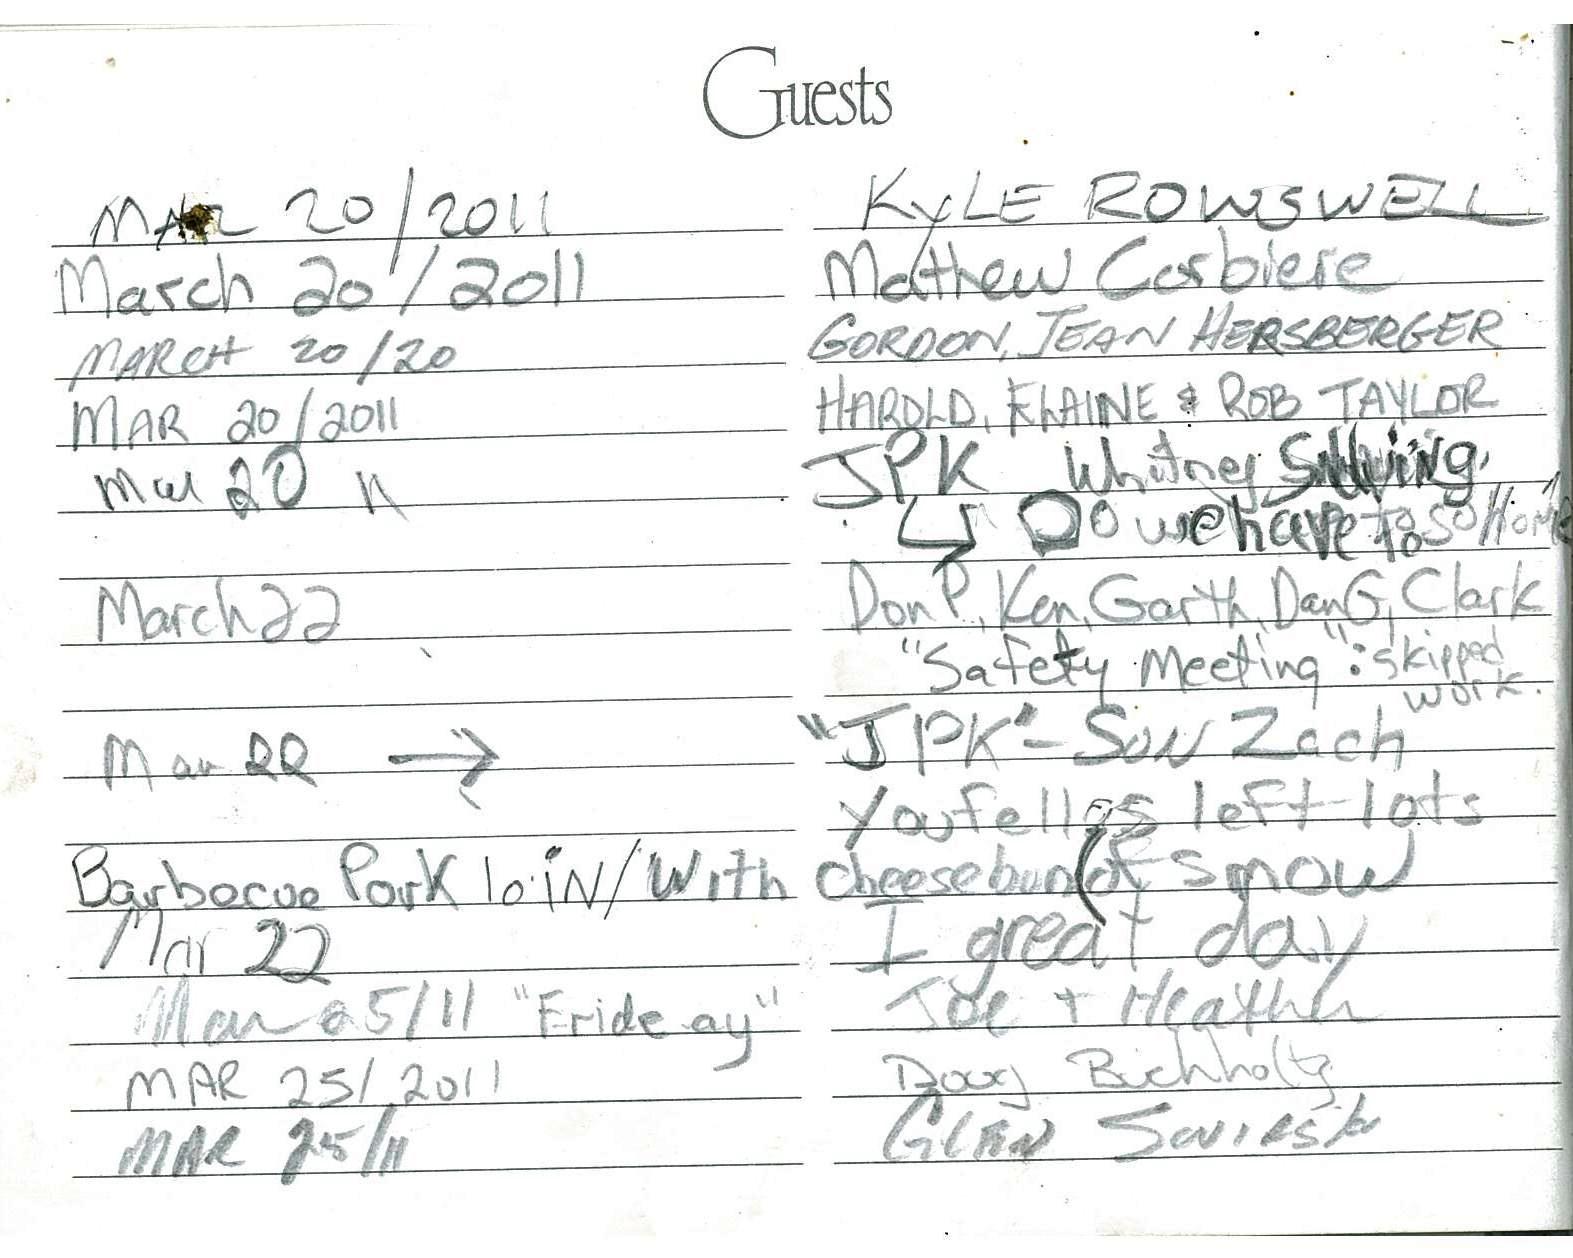 Guests
MAR 20/2011 KYLE ROWSWELL
March 20/2011 Matthew Corbiere
MARCH 20/20 GORDON, JEAN HERSBERGER
MAR 20/2011 HAROLD, ELAINE & ROB TAYLOR
Mar 20 11 JPK Whitney
Do we have to go Home
March 22 Don P, Ken, Garth, Dan G, Clark
"Safety Meeting" : skipped
work.
Mar 22 → "JPK" - Son Zach
you fellas left lots
Barbecue Pork loin/With cheesebun (of snow
Mar 22 I great day
Mar 25/11 "Erideay" Joe + Heather
MAR 25/2011 Doug Buchholtz
MAR 25/11 GLEN